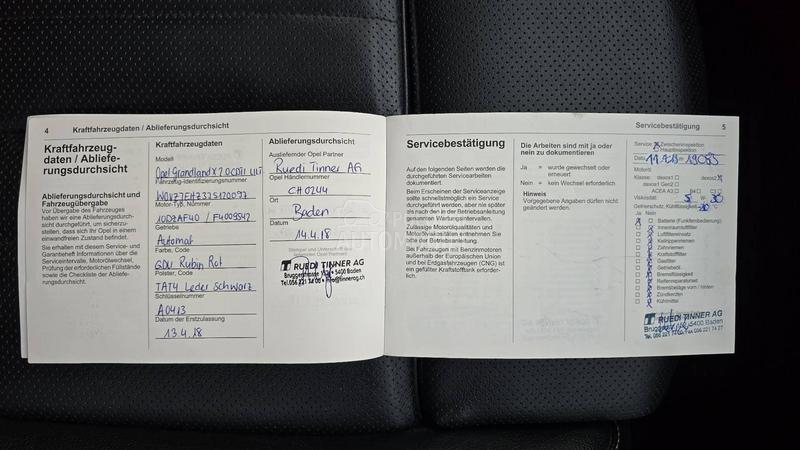 4 Kraftfahrzeugdaten / Ablieferungsdurchsicht
Kraftfahrzeug-
daten / Abliefe-
rungsdurchsicht
Ablieferungsdurchsicht und
Fahrzeugübergabe
Vor Übergabe des Fahrzeuges
haben wir eine Ablieferungsdurch-
sicht durchgeführt, um sicherzu-
stellen, dass sich Ihr Opel in einem
einwandfreien Zustand befindet.
Sie erhalten mit diesem Service- und
Garantieheft Informationen über die
Serviceintervalle, Motorölwechsel,
Prüfung der erforderlichen Füllstände
sowie die Checkliste der Abliefe-
rungsdurchsicht.
Kraftfahrzeugdaten
Modell
Opel Grandland X 2.0CDTI
Fahrzeug-Identifizierungsnummer
Motor-Typ, Nummer
Getriebe
Automat
Farbe, Code
GDU Rubin Rot
Polster, Code
TAT4 Leder Schwarz
Schlüsselnummer
A0413
Datum der Erstzulassung
13.4.18
Ablieferungsdurchsicht
Ausliefernder Opel Partner
Ruedi Tinner AG
Opel Händlernummer
CH0244
Ort
Baden
Datum
14.4.18
Stempel und Unterschrift des
RUEDI TINNER AG
Bruggerstrasse 5400 Baden
Servicebestätigung 5
Servicebestätigung
Auf den folgenden Seiten werden die
durchgeführten Servicearbeiten
dokumentiert.
Beim Erscheinen der Serviceanzeige
sollte schnellstmöglich ein Service
durchgeführt werden, aber nie später
als nach den in der Betriebsanleitung
genannten Wartungsintervallen.
Zulässige Motorölqualitäten und
Motorölviskositäten entnehmen Sie
bitte der Betriebsanleitung.
Bei Fahrzeugen mit Benzinmotoren
außerhalb der Europäischen Union
und bei Erdgasfahrzeugen (CNG) ist
ein gefüllter Kraftstofftank erforder-
lich.
Die Arbeiten sind mit ja oder
nein zu dokumentieren
Ja = wurde gewechselt oder
erneuert
Nein = kein Wechsel erforderlich
Hinweis
Vorgegebene Angaben dürfen nicht
geändert werden.
Service Zwischeninspektion
Hauptinspektion
Datum 19085
Motoröl
Klasse: dexos1 dexos2
dexos1 Gen2
ACEA A3 B4 C3
Viskosität: 5 W- 30
Gefrierschutz, Kühlflüssigkeit -30
Ja Nein
Batterie (Funkfernbedienung)
Innenraumluftfilter
Luftfiltereinsatz
Keilrippenriemen
Zahnriemen
Kraftstofffilter
Gasfilter
Getriebeöl
Bremsflüssigkeit
Reifenreparaturset
Bremsbeläge vorn / hinten
Zündkerzen
Kühlmittel
RUEDI TINNER AG
5400 Baden